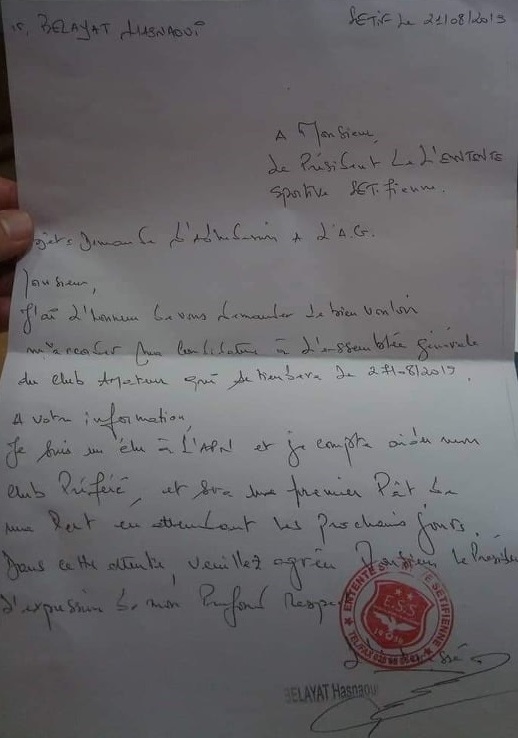 BELAYAT HASNAOUI
SETIF Le 21/08/2019
A Monsieur,
Le Président de L'ENTENTE
Sportive SETifienne.
Demande d'Adhésion A L'A.G.
Monsieur,
J'ai l'honneur de vous demander de bien vouloir
m'accepter ma candidature à l'assemblée générale
du club Amateur qui se tiendra le 27/08/2019.
A votre information,
Je suis un élu à L'APN et je compte aider mon
club Préféré, et sera une premier Pât de
ma Part en attendant les Prochains jours.
Dans cette attente, veuillez agréer Monsieur le Président
l'expression de mon Profond Respect
ENTENTE SPORTIVE SETIFIENNE
E.S.S
BELAYAT Hasnaoui